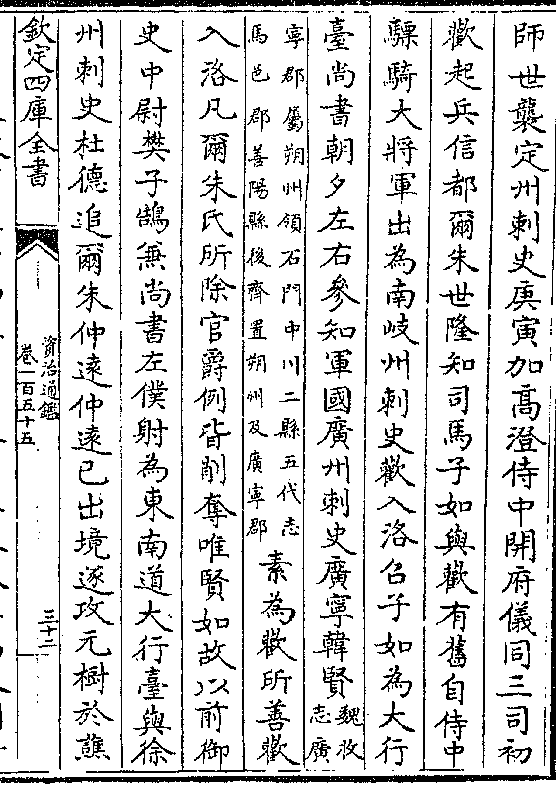 師世襲定州刺史庚寅加髙澄侍中開府儀同三司初
歡起兵信都爾朱世隆知司馬子如與歡有舊自侍中
驃騎大將軍出為南岐州刺史歡入洛召子如為大行
臺尚書朝夕左右參知軍國廣州刺史廣寧韓賢魏收志廣
寧郡屬朔州領石門中川二縣五代志馬邑郡善陽縣後齊置朔州及廣寧郡素為歡所善歡
入洛凡爾朱氏所除官爵例皆削奪唯賢如故以前御
史中尉樊子鵠兼尚書左僕射為東南道大行臺與徐
州刺史杜德追爾朱仲逺仲逺已出境遂攻元樹於譙
欽定四庫全書
資治通鑑
卷一百五十五
三十二